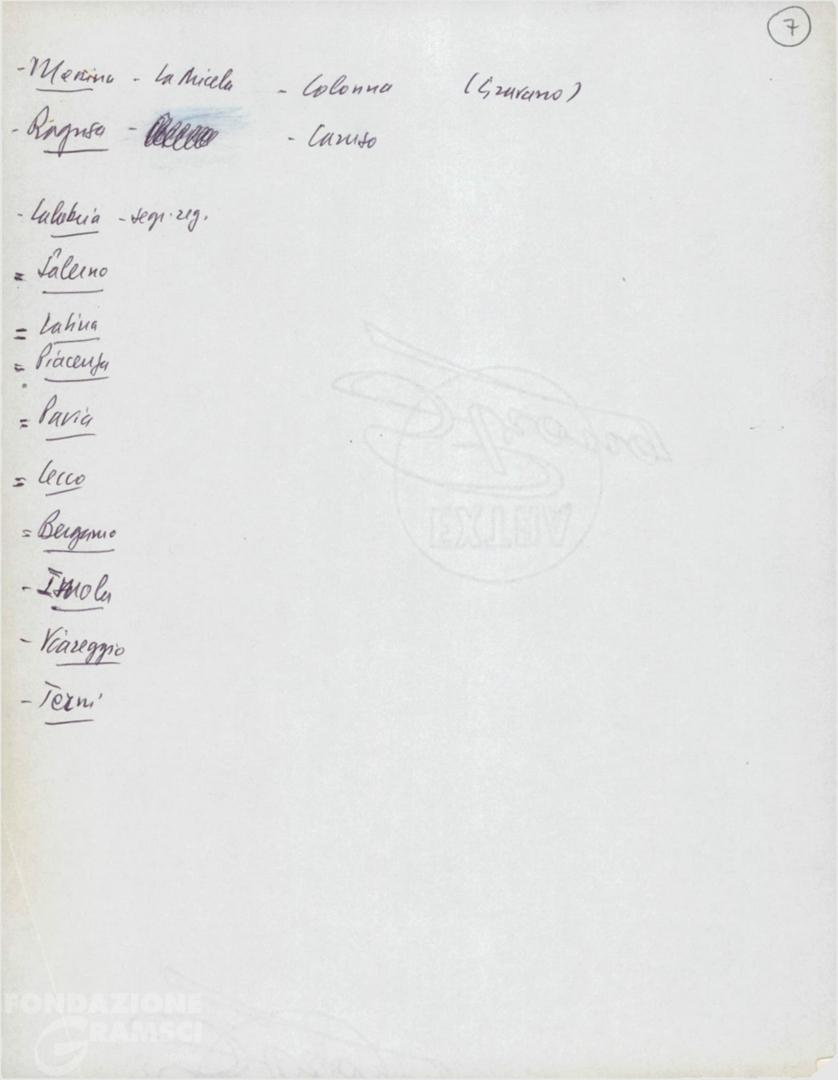 7
- Messina - La Micela - Colonna (Gravano)
- Ragusa - - Caruso
- Calabria - segr. reg.
= Salerno
= Latina
= Piacenza
= Pavia
= Lecco
= Bergamo
- Imola
- Viareggio
- Terni
EXTRA
FONDAZIONE
GRAMSCI